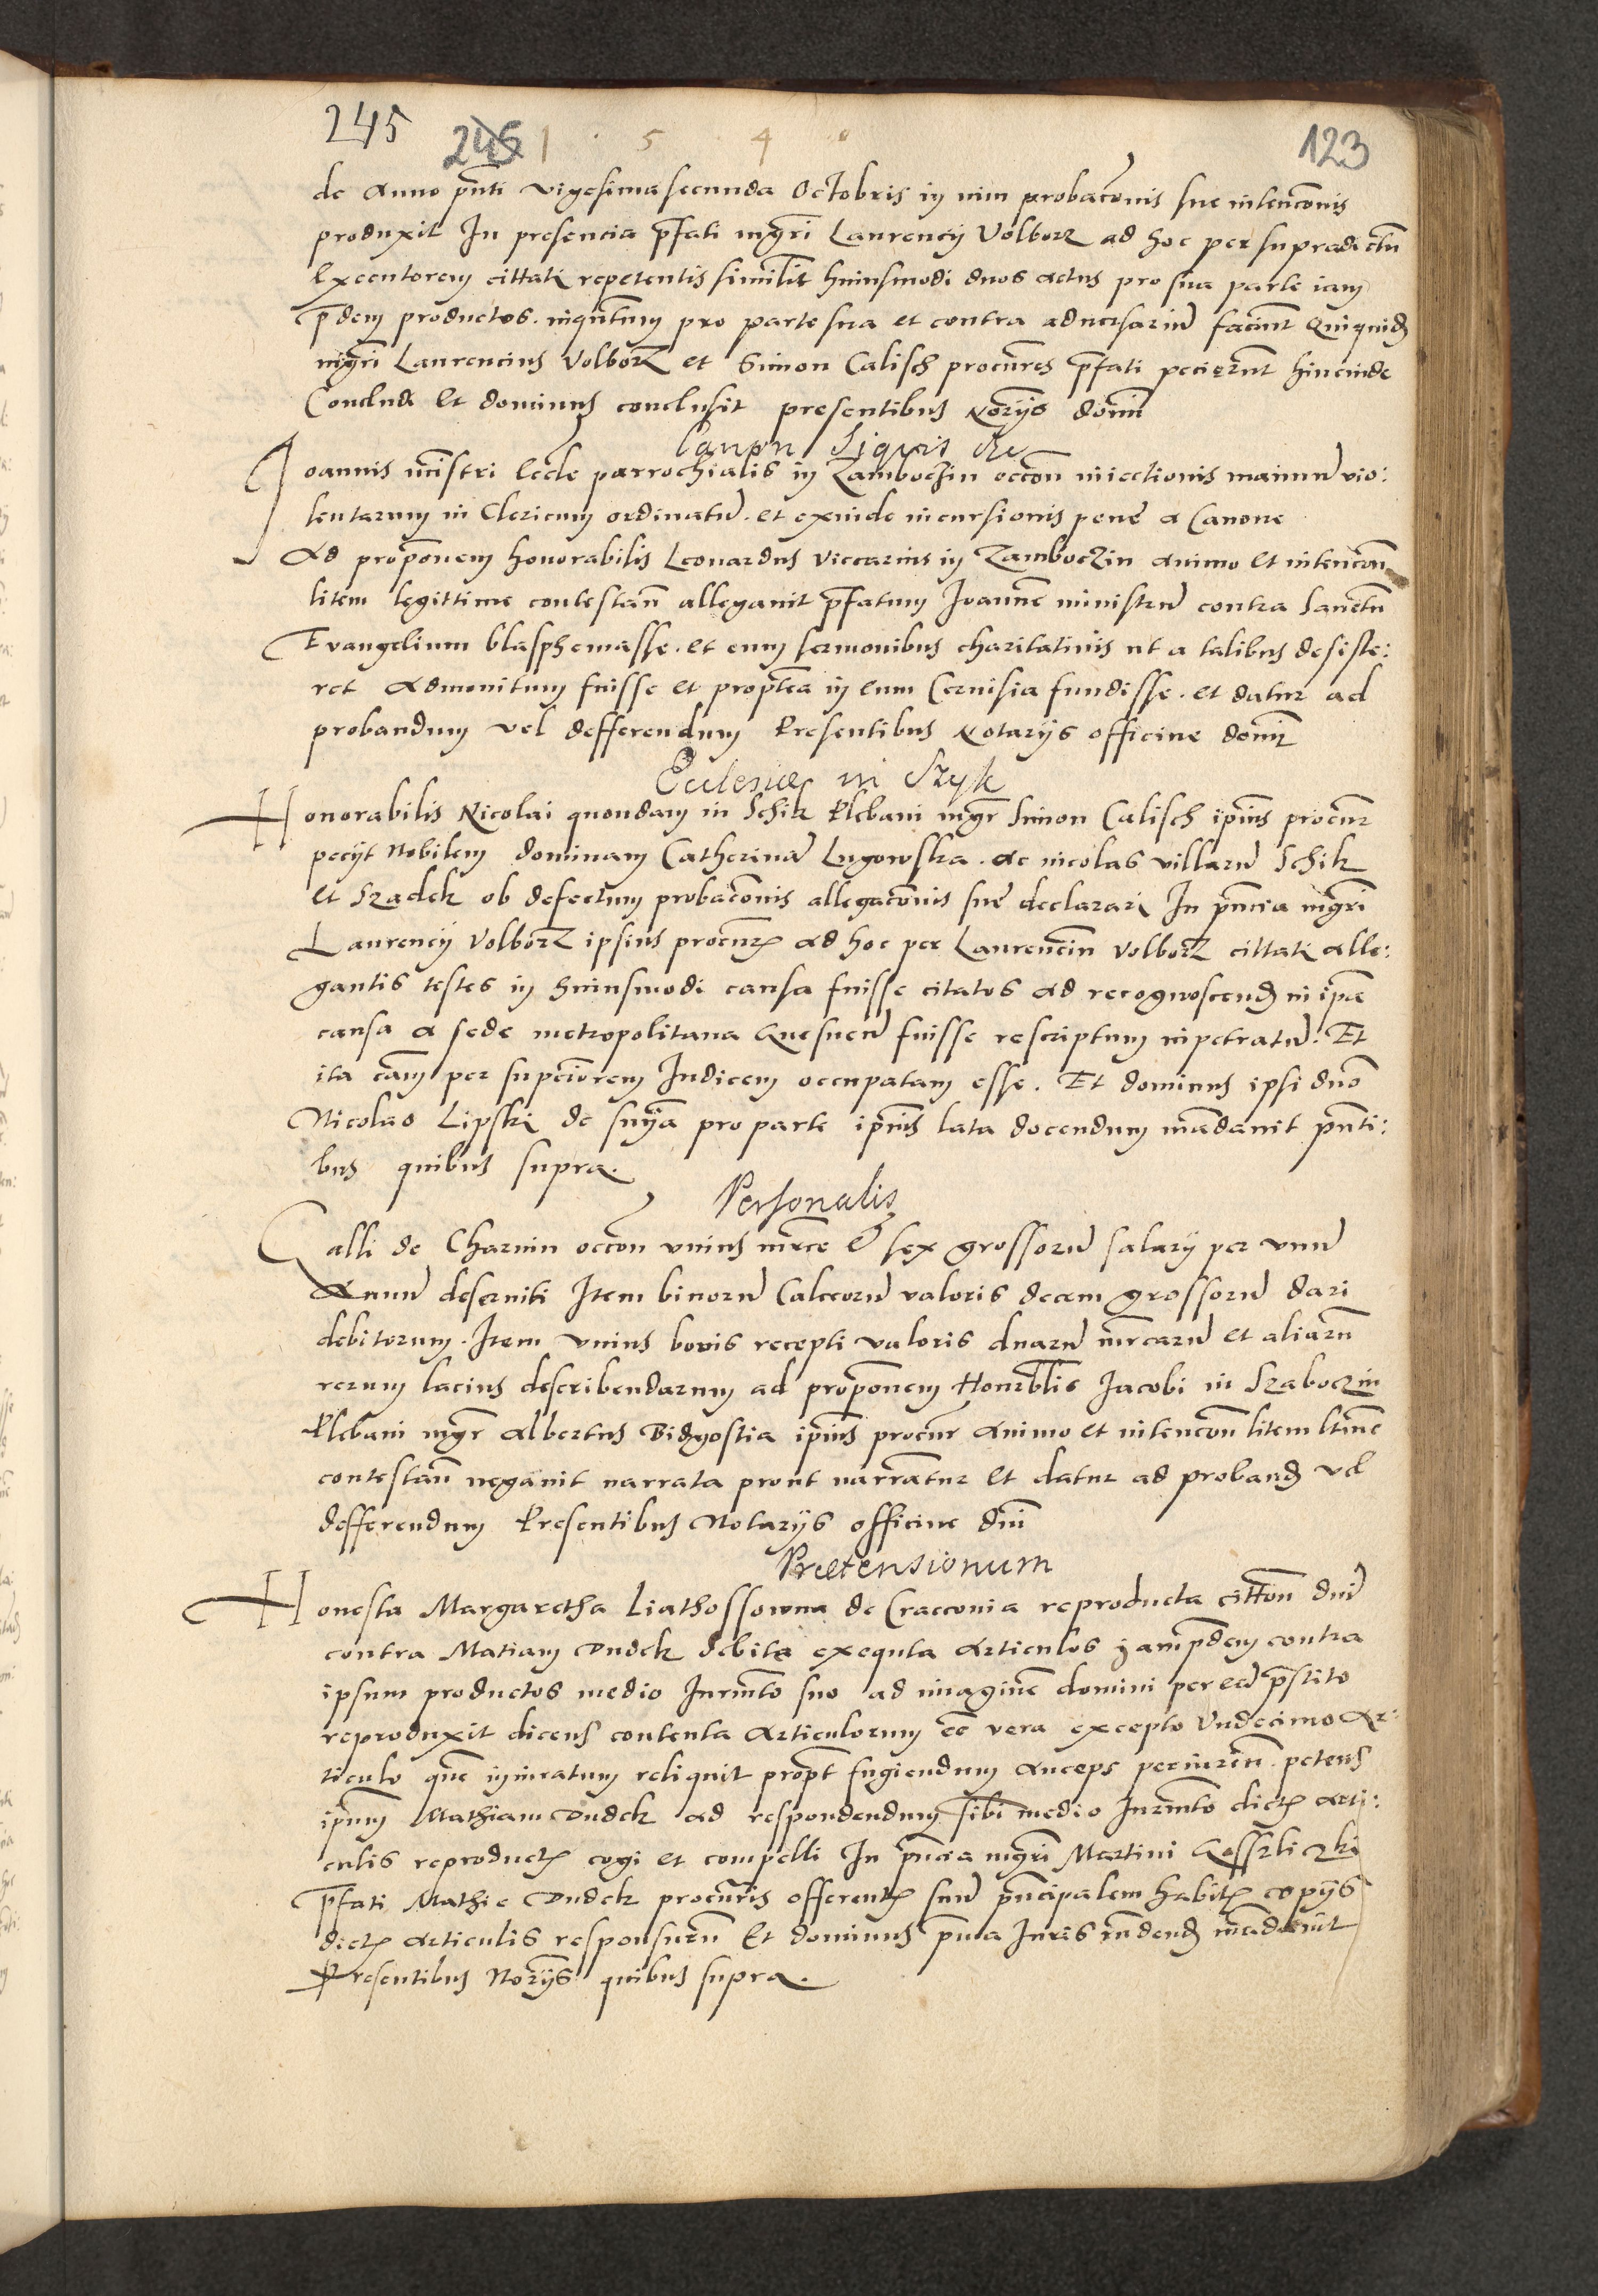 245 246 1 5 4 0 123
de Anno pñti vigesimasecunda Octobris in vim probacõnis sue intencõnis
produxit In presencia pfati mgri Laurencij Volborz ad hoc per supradictũ
Executorem cittati repetentis similit huiusmodi duos actus pro sua parte iam
pdem productos. inqntum pro parte sua et contra adversariũ faciunt Qui quid
mgri Laurencius Volborz et Simon Calisch procures pfati pecierunt hincinde
Concludi Et dominus conclusit presentibus Norijs domi
Canon Siquis
Joannis mistri Eccle parrochialis in Zamboczin occõn iniectionis manuũ vio:
lentarum in Clericum ordinatũ. et exinde incursionis pene a Canone
Ad proponem honorabilis Leonardus Viccarius in Zamboczin animo et intencõn
litem legittime contestañ allegavit pfatum Joannẽ ministrũ contra Sanctũ
Evangelium blasphemasse. et eum sermonibus charitativis ut a talibus desiste:
ret admonitum fuisse et proptea in eum Cervisia fundisse. et datur ad
probandum vel defferendum Presentibus Notarijs officine domi
Ecclesiæ in Szyk
Honorabilis Nicolai quondam in Schik Plebani mgr Simon Calisch ipius procur
pecijt Nobilem dominam Catherinã Lugowska. ac incolas villarũ Schik
et Szadek ob defectum probacõnis allegacõnis sue declarari In pñcia mgri
Laurencij Volborz ipsius procur ad hoc per Laurenciũ Volborz cittati alle:
gantis testes in huiusmodi causa fuisse citatos ad recognoscend in ipa
causa a sede metropolitana Gnesneñ fuisse rescriptum inpetratũ. Et
ita eam per superiorem Iudicem occupatam esse. Et dominus ipsi dno
Nicolao Lipski de snija pro parte ipius lata docendum mãdavit pñti:
bus quibus supra.
Personalis
Galli de Charnin occõn vnius mrce et sex grossorũ salarij per vnũ
Annũ deserviti Item binorũ Calceorũ valoris decem grossorũ dari
debitorum. Item vnius bovis recepti valoris duarũ mrcarũ et aliarũ
rerum lacius describendarum ad proponem Honrblis Jacobi in Szaboczin
Plebani mgr Albertus Bidgostia ipius procur Animo et intencõn litem ltime
contestañ negavit narrata prout narrãtur Et datur ad proband vel
defferendum Presentibus Notarijs officine dni
Prætensionum
Honesta Margaretha Liathossowna de Cracconia reproducta cittõn dni
contra Matiam Dudek debite exequta Articulos jampdem contra
ipsum productos medio Iurmto suo ad imaginẽ domini per eã pstito
reproduxit dicens contenta Articulorum ee vera excepto Vndecimo Ar:
ticulo quẽ iniuratum reliquit propt fugiendum anceps periurium. petens
ipium Mathiam Dudek ad respondendum sibi medio Iurmto dict arti:
culis reproduct cogi et compelli In pñcia mgri Martini
pfati Mathie Dudek procuris offerent suũ principalem habit copijs
dict articulis responsurũ Et dominus pma Iuris rñdend mãdavit
Presentibus Norijs quibus supra.